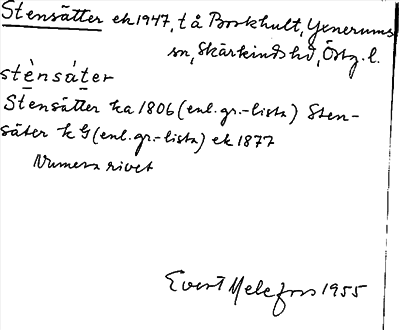 Stensätter ek 1947, t å Borkhult, Yxnerums
sn, Skärkinds hd, Östg. l.
stènsáter
Stensätter ha 1806 (enl. gr.-lista) Sten-
säter k G (enl. gr.-lista) ek 1877
Numera rivet
Evert Melefors 1955